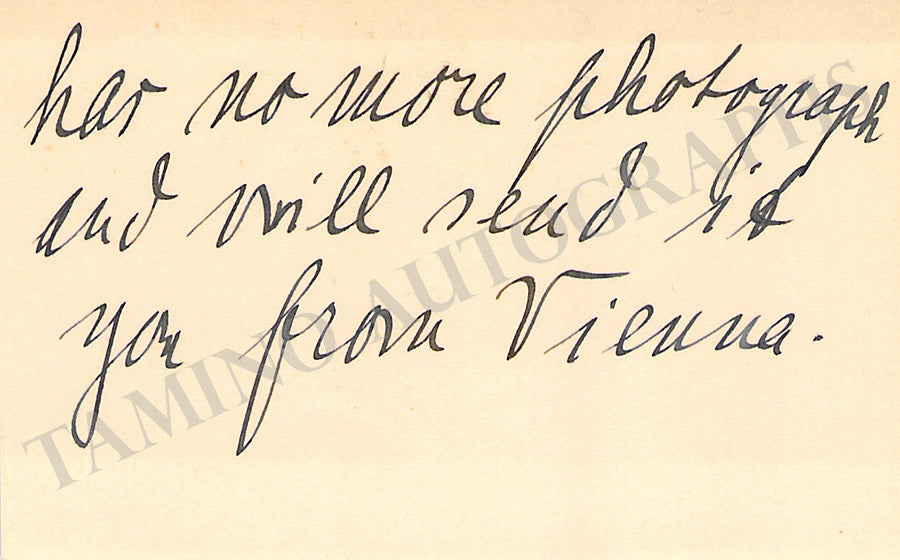 has no more photograph
and will send it
you from Vienna.
TAMINO AUTOGRAPHS